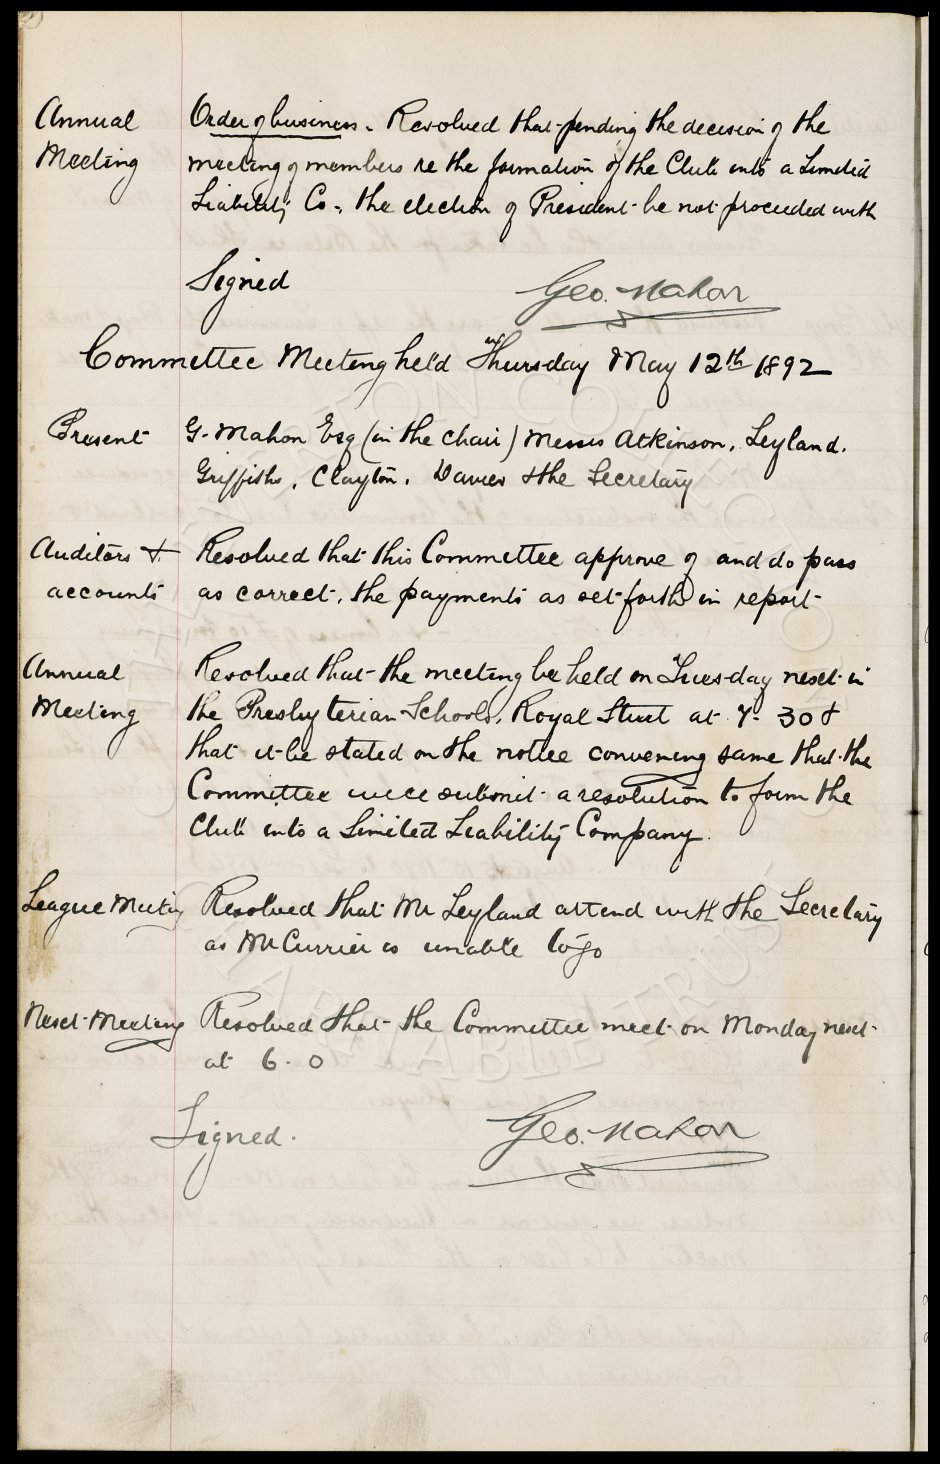 Annual Meeting
Order of business. Resolved that pending the decision of the
meeting of members re the formation of the Club into a Limited
Liability Co., the election of President be not proceeded with
Signed
Geo. Mahon
Committee Meeting held Thursday May 12th 1892
Present
G. Mahon Esq (in the chair) Messrs Atkinson, Leyland,
Griffiths, Clayton, Davies & the Secretary
Auditors & accounts
Resolved that this Committee approve of and do pass
as correct, the payments as set forth in report
Annual Meeting
Resolved that the meeting be held on Tuesday next in
the Presbyterian Schools, Royal Street at 7-30 &
that it be stated on the notice convening same that the
Committee will submit a resolution to form the
Club into a Limited Liability Company.
League Meeting
Resolved that Mr Leyland attend with the Secretary
as Mr Currier is unable to go
Next Meeting
Resolved that the Committee meet on Monday next
at 6.0
Signed.
Geo. Mahon